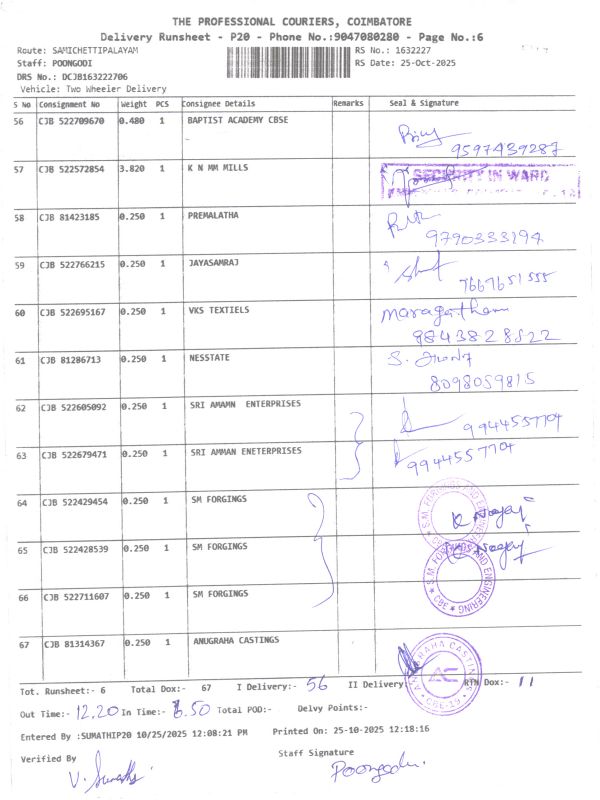 THE PROFESSIONAL COURIERS, COIMBATORE
Delivery Runsheet - P20 - Phone No.:9047080280 - Page No.:6
Route: SAMICHETTIPALAYAM RS No.: 1632227
Staff: POONGODI RS Date: 25-Oct-2025
DRS No.: DCJB163222706
Vehicle: Two Wheeler Delivery
S No Consignment No Weight PCS Consignee Details Remarks Seal & Signature
56 CJB 522709670 0.480 1 BAPTIST ACADEMY CBSE
9597439287
57 CJB 522572854 3.820 1 K N MM MILLS SECURITY IN WARD
58 CJB 81423185 0.250 1 PREMALATHA
9790333194
59 CJB 522766215 0.250 1 JAYASAMRAJ
7667651555
60 CJB 522695167 0.250 1 VKS TEXTIELS Maragatham
9843828522
61 CJB 81286713 0.250 1 NESSTATE
8098059815
62 CJB 522605092 0.250 1 SRI AMAMN ENTERPRISES
9944557704
63 CJB 522679471 0.250 1 SRI AMMAN ENETERPRISES
9944557704
64 CJB 522429454 0.250 1 SM FORGINGS
65 CJB 522428539 0.250 1 SM FORGINGS
S.M. FORGINGS AND ENGINEERING CBE
66 CJB 522711607 0.250 1 SM FORGINGS
67 CJB 81314367 0.250 1 ANUGRAHA CASTINGS ANUGRAHA CASTINGS AC CBE-19
Tot. Runsheet:- 6 Total Dox:- 67 I Delivery:- 56 II Delivery RTN Dox:- 11
Out Time:- 12.20 In Time:- 6.50 Total POD:- Delvy Points:-
Entered By :SUMATHIP20 10/25/2025 12:08:21 PM Printed On: 25-10-2025 12:18:16
Verified By Staff Signature
V. Sumathi Poongodi.